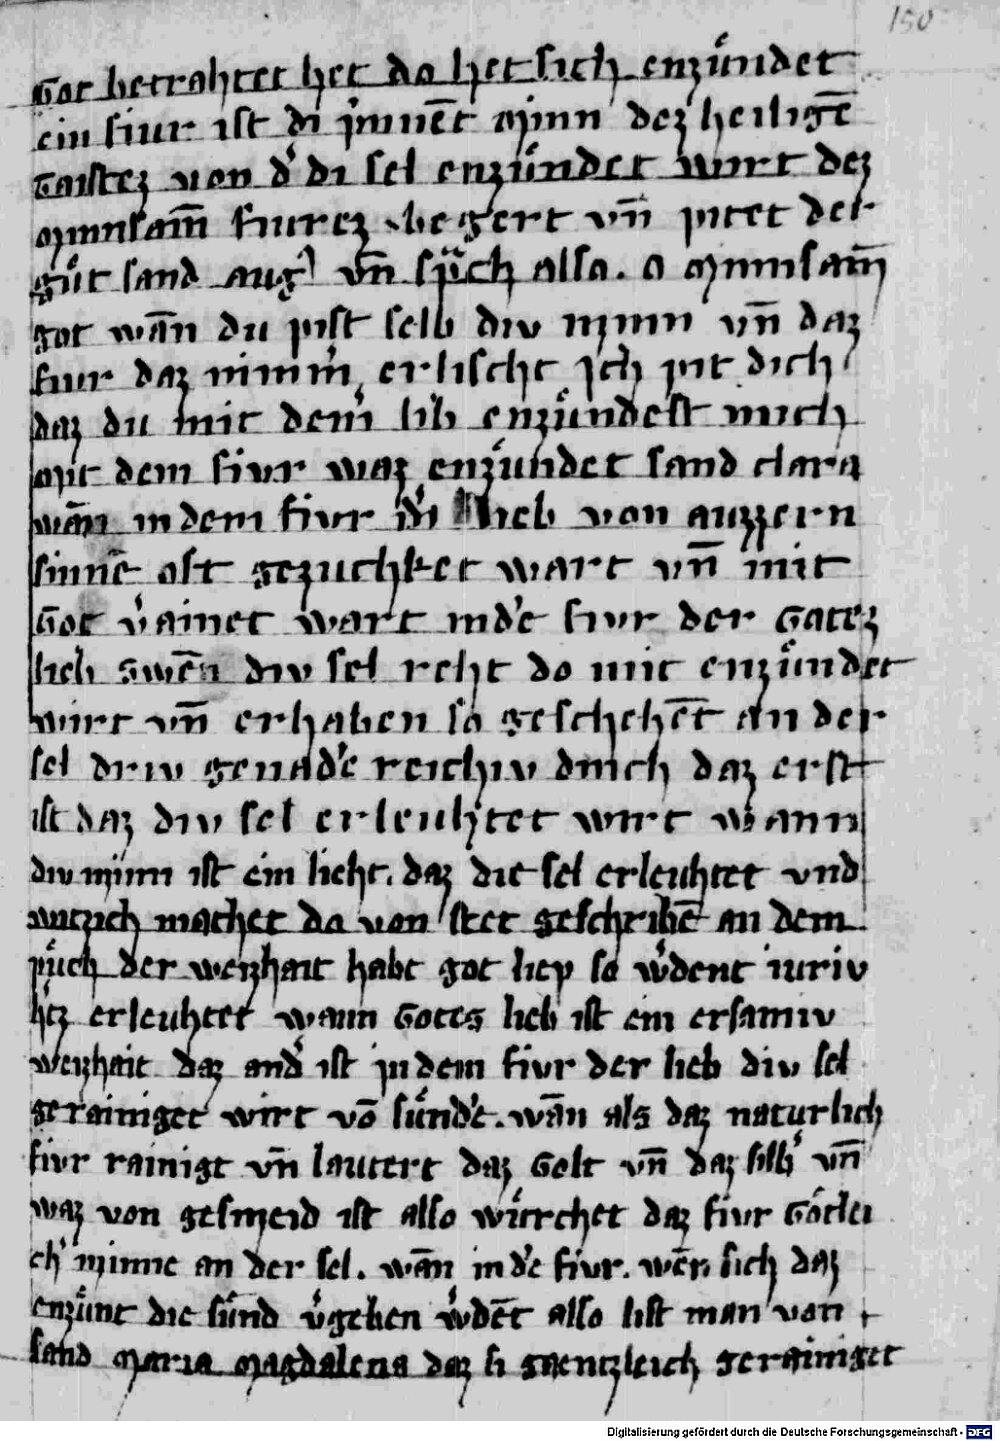 150
Got betrahtet het do het sich enzündet
ein fiur ist di prinnēt minn dez heiligē
Gaistez von d' di sel enzündet wirt dez
minnsam̄ fiurez begert vn̄ pitet der
gůt sand aug' vn̄ sprach also. o minnsam̄
got wān du pist selb div minn vn̄ daz
fiur daz nimm' erlischt ich pit dich
daz du mit dein' lib enzündest mich
mit dem fivr waz enzündet sand clara
wān in dem fivr d' lieb von auzzern
sinnē oft gezuchket wart vn̄ mit
Got v'ainet wart in d'e fivr der Gotez
lieb swēn div sel reht do mit enzündet
wirt vn̄ erhaben so geschehēt an der
sel driv genad'e reichiv dinch daz erst
ist daz div sel erleuhtet wirt wann
div minn ist ein lieht. daz die sel erleuhtet vnd
witzich machet do von stet geschribē an dem
půch der weizhait habt got liep so w'dent iuriv
h'tz erleuhtet wann Gotes lieb ist ein ersamiv
weizhait daz and' ist in dem fivr der lieb div sel
gerainiget wirt vō sünd'e. wān als daz naturlich
fivr rainigt vn̄ lautert daz Golt vn̄ daz silb' vn̄
waz von gesmeid ist also würchet daz fivr Götlei
ch' minne an der sel. wān in d'e fivr. wēn sich daz
enzünt die sünd v'geben w'dēt also list man von
sand Maria Magdalena daz si gaentzleich gerainiget
Digitalisierung gefördert durch die Deutsche Forschungsgemeinschaft - DFG